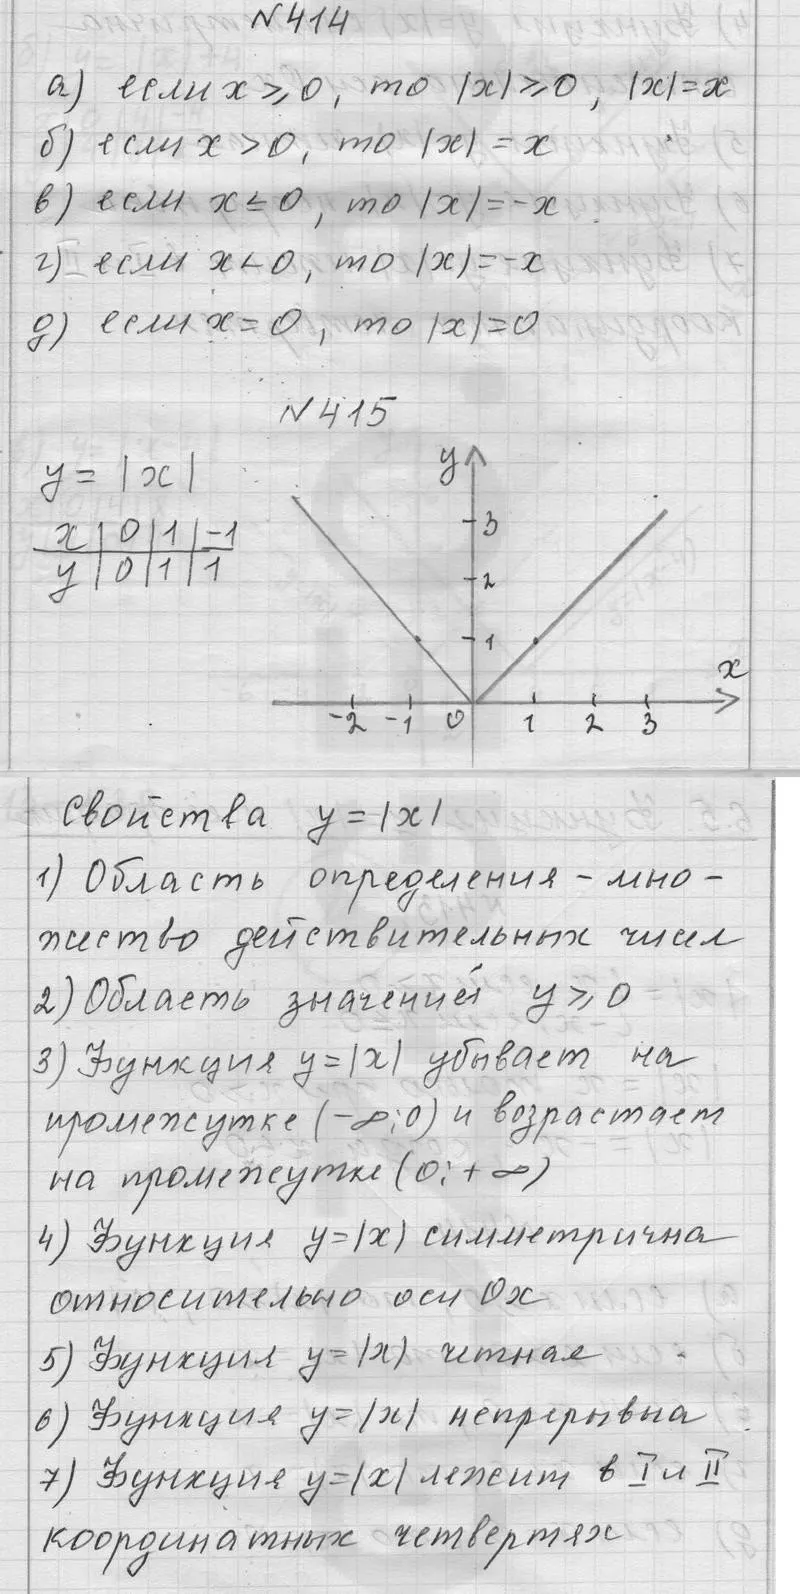 №414
а) если x ⩾ 0, то |x| ⩾ 0, |x| = x
б) если x > 0, то |x| = x
в) если x ≤ 0, то |x| = -x
г) если x < 0, то |x| = -x
д) если x = 0, то |x| = 0
№415
y = |x|
x | 0 | 1 | -1
y | 0 | 1 | 1
y
3
2
1
x
-2 -1 0 1 2 3
Свойства y = |x|
1) Область определения - мно-
жество действительных чисел
2) Область значений y ⩾ 0
3) Функция y = |x| убывает на
промежутке (-∞; 0) и возрастает
на промежутке (0; +∞)
4) Функция y = |x| симметрична
относительно оси Ox
5) Функция y = |x| четная
6) Функция y = |x| непрерывна
7) Функция y = |x| лежит в I и II
координатных четвертях